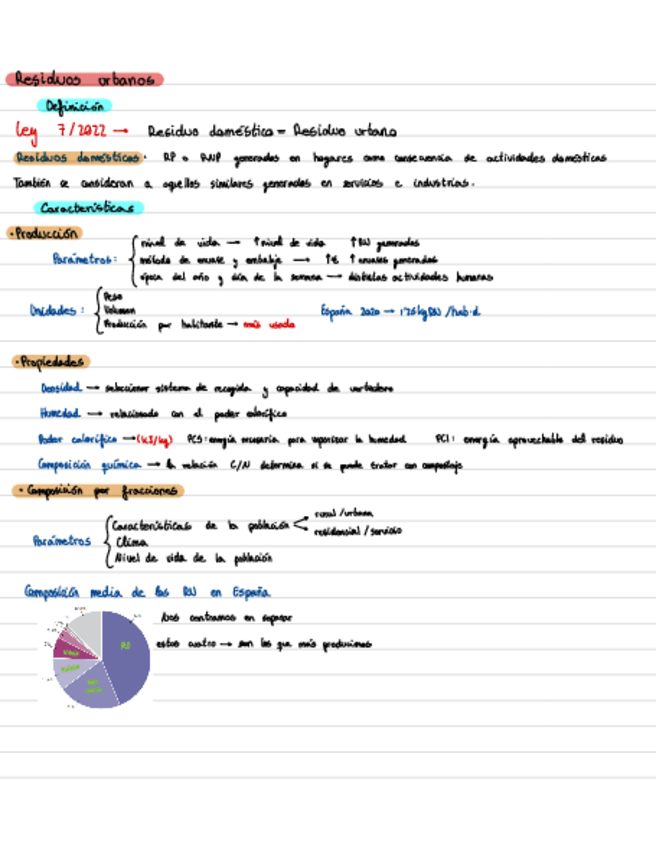 Residuos urbanos
Definición
Ley 7/2022 → Residuo doméstico = Residuo urbano
Residuos domésticos: RP o RNP generados en hogares como consecuencia de actividades domésticas
También se consideran a aquellos similares generados en servicios e industrias.
Características
· Producción
Parámetros:
nivel de vida → ↑ nivel de vida ↑ RU generados
método de envase y embalaje → ↑E ↑ envases generados
época del año y día de la semana → distintas actividades humanas
Unidades:
Peso
Volumen
Producción por habitante → más usada
España 2020 → 1'26 kg RU /hab·d
· Propiedades
Densidad → seleccionar sistema de recogida y capacidad de vertedero
Humedad → relacionado con el poder calorífico
Poder calorífico → (kJ/kg) PCS: energía necesaria para vaporizar la humedad PCI: energía aprovechable del residuo
Composición química → la relación C/N determina si se puede tratar con compostaje
· Composición por fracciones
Parámetros
Características de la población
rural /urbana
residencial / servicio
Clima
Nivel de vida de la población
Composición media de los RU en España
Nos centramos en separar
estos cuatro → son los que más producimos